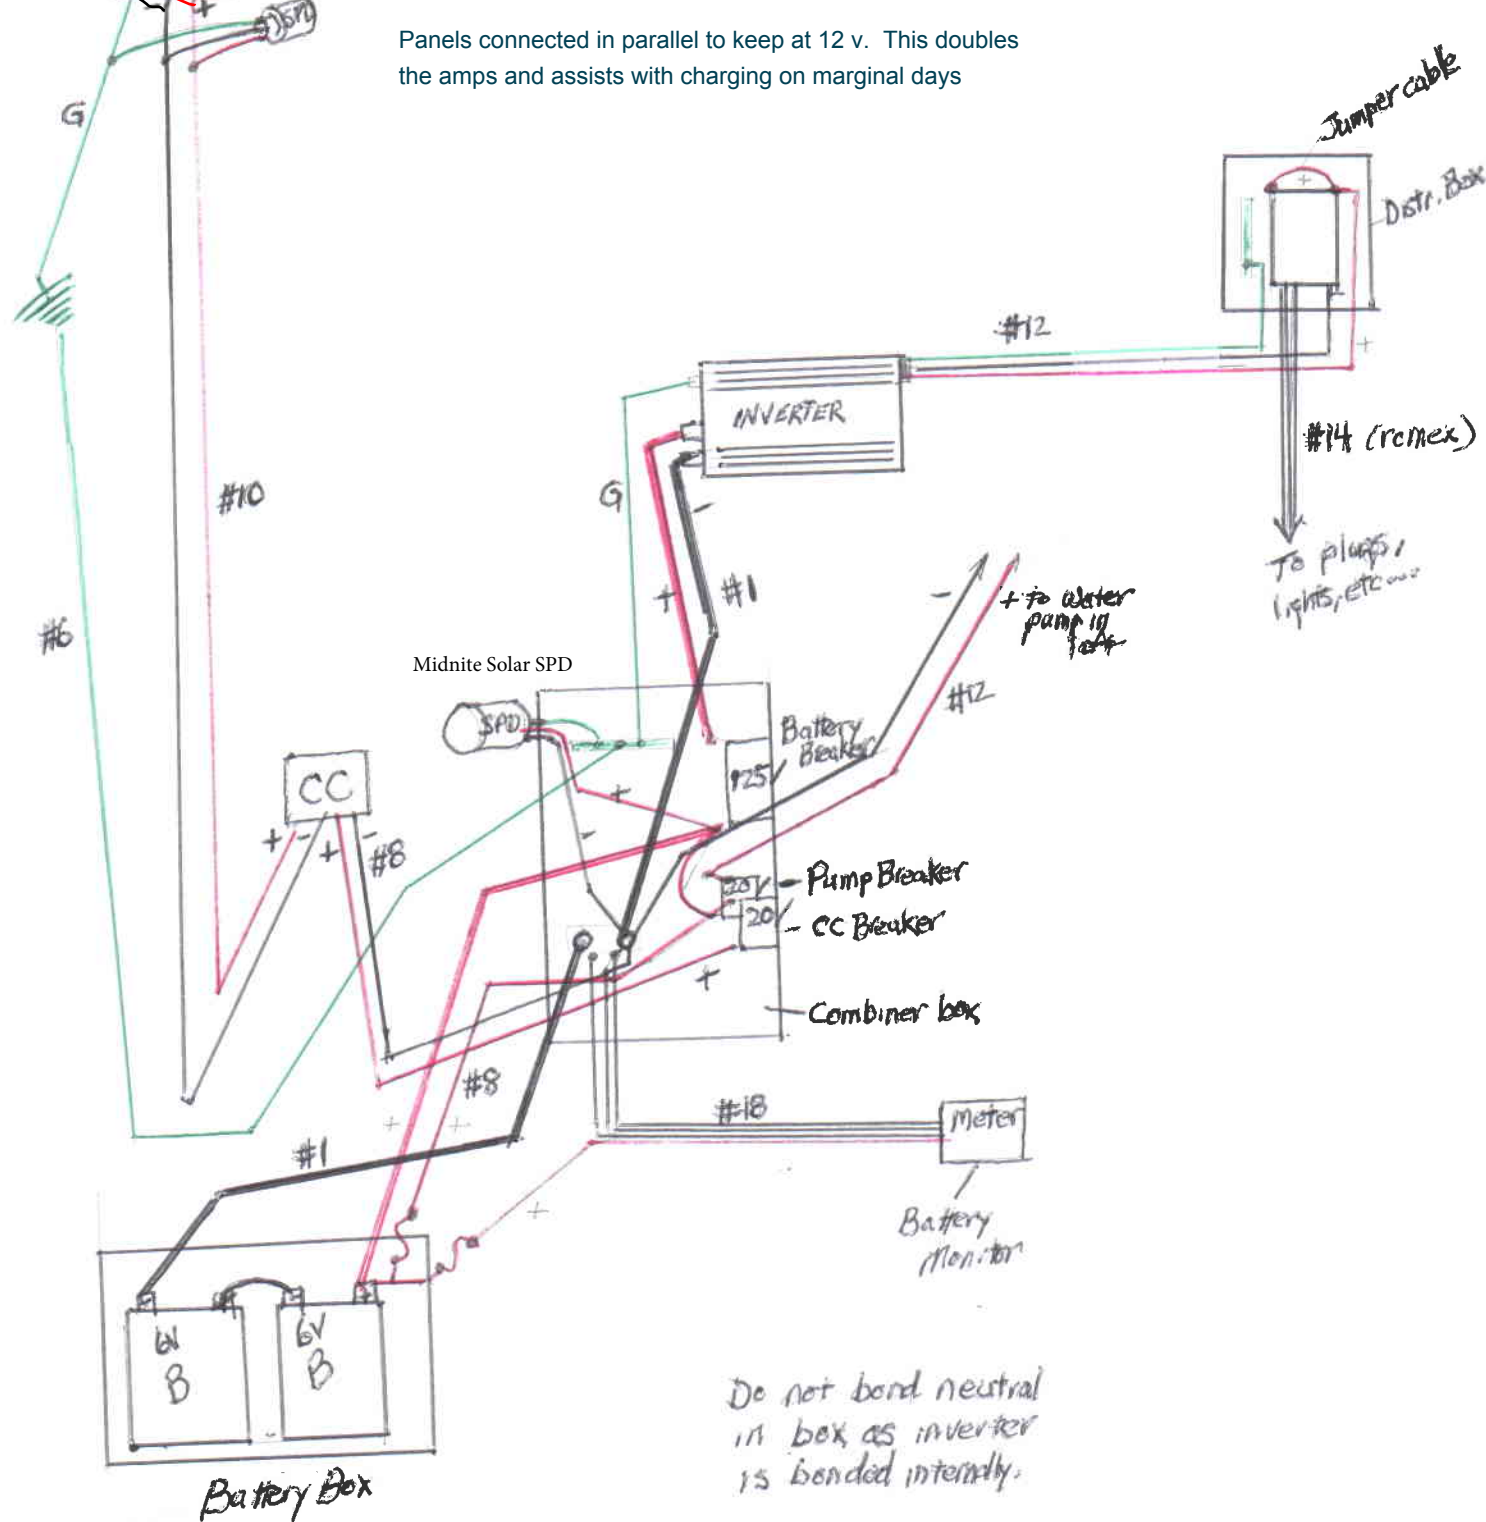 +
SPD
Panels connected in parallel to keep at 12 v. This doubles
the amps and assists with charging on marginal days
G
Jumper cable
+
Distr. Box
-
#12
+
INVERTER
#14 (romex)
#10
G
-
To plugs,
lights, etc...
+
#1
-
+ to water
pump in
#6
Midnite Solar SPD
#12
SPD
Battery
Breaker
125
CC
+
-
+ - + -
#8
Pump Breaker
20
20
CC Breaker
+
Combiner box
#8
+ +
#18
Meter
#1
+
Battery
Monitor
- + - +
6V
B
6V
B
Do not bond neutral
in box as inverter
is bonded internally.
Battery Box